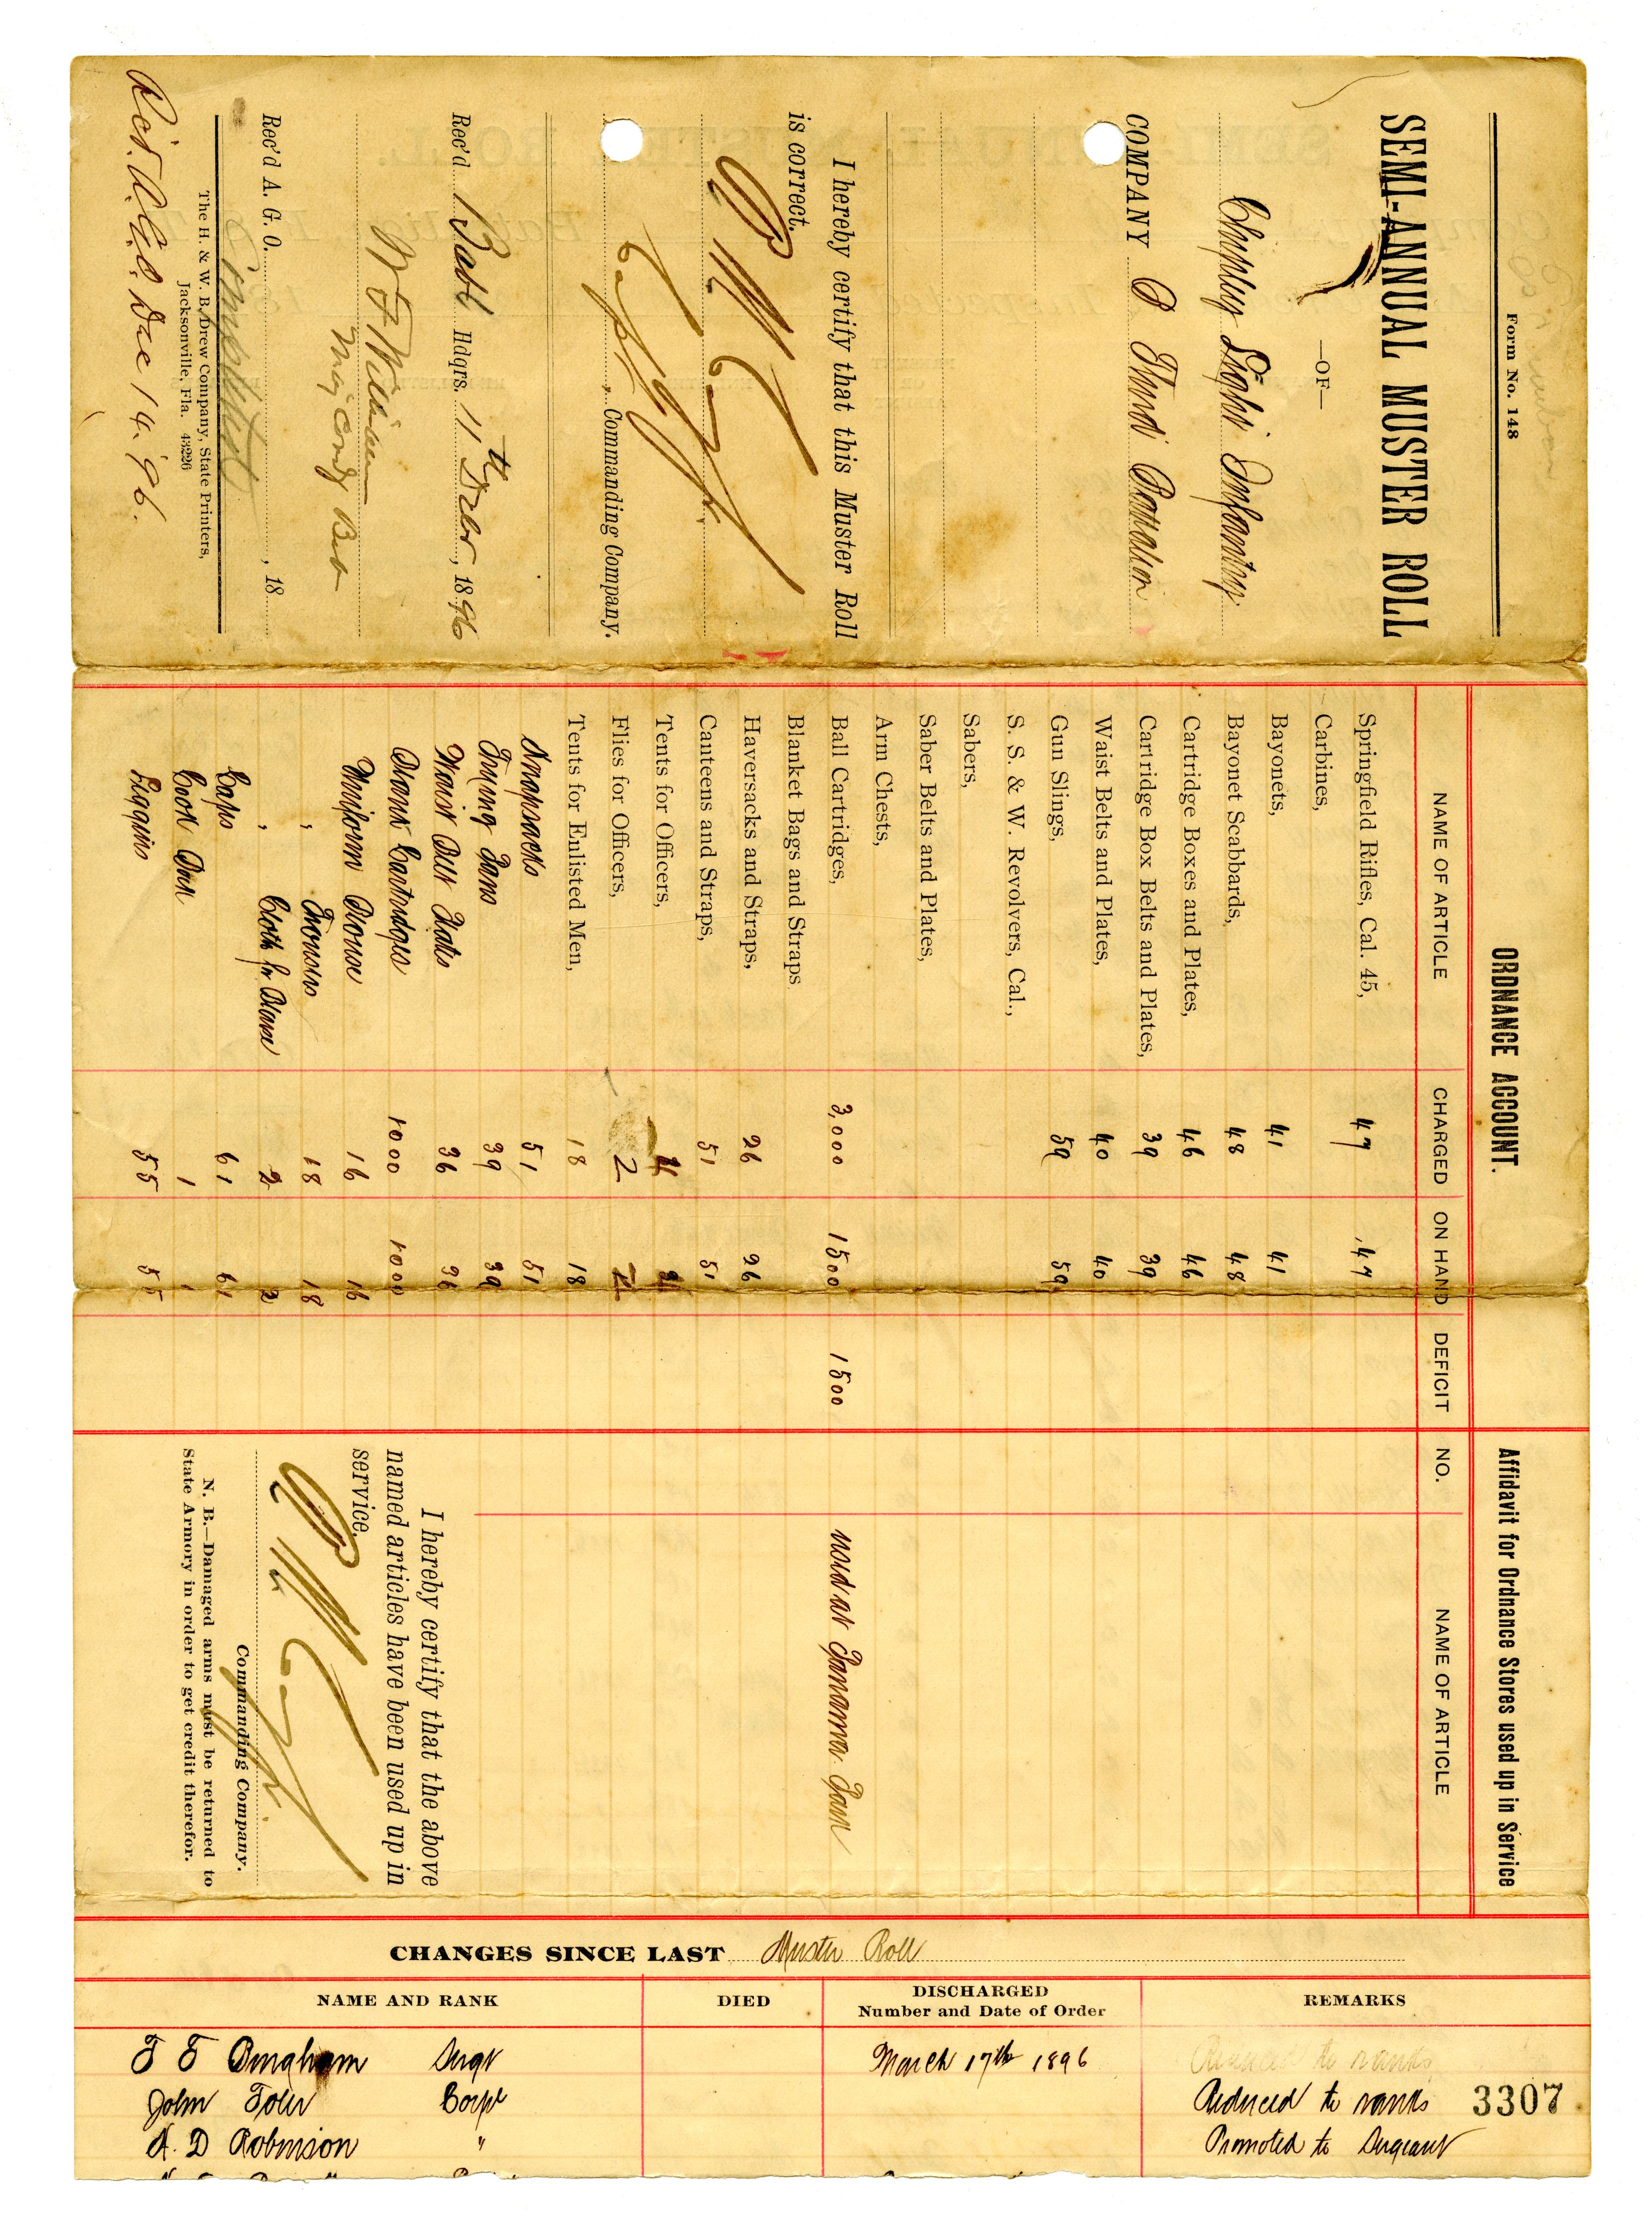 Form No. 148
SEMI-ANNUAL MUSTER ROLL
—OF—
Chipley Light Infantry
COMPANY B Third Battalion
I hereby certify that this Muster Roll
is correct.
Capt
, Commanding Company.
Rec'd 1 Batt Hdqrs. 11th Decbr, 1896
W F Williams
Maj Comdg Bat
Rec'd A. G. O. , 18
Completed
The H. & W. B. Drew Company, State Printers,
Jacksonville, Fla. 43226
Rec'd. A.G.O. Dec 14. '96.
ORDNANCE ACCOUNT.
NAME OF ARTICLE CHARGED ON HAND DEFICIT
Springfield Rifles, Cal. 45, 47 47
Carbines,
Bayonets, 41 41
Bayonet Scabbards, 48 48
Cartridge Boxes and Plates, 46 46
Cartridge Box Belts and Plates, 39 39
Waist Belts and Plates, 40 40
Gun Slings, 59 59
S. S. & W. Revolvers, Cal.,
Sabers,
Saber Belts and Plates,
Arm Chests,
Ball Cartridges, 3,000 1500 1500
Blanket Bags and Straps
Haversacks and Straps, 26 26
Canteens and Straps, 51 51
Tents for Officers,
Flies for Officers, 2 2
Tents for Enlisted Men, 18 18
Knapsacks 51 51
Frying Pans 39 39
Waist Belt Plates 36 36
Blank Cartridges 1000 1000
Uniform Blouse 16 16
" Trousers 18 18
" Cloth for Blouse 2 2
Caps 61 61
Cook 1 1
Leggins 55 55
Affidavit for Ordnance Stores used up in Service
NO. NAME OF ARTICLE
used at Panama Park
I hereby certify that the above
named articles have been used up in
service.
Commanding Company.
N. B.—Damaged arms must be returned to
State Armory in order to get credit therefor.
CHANGES SINCE LAST Muster Roll
NAME AND RANK DIED DISCHARGED Number and Date of Order REMARKS
F F Bingham Sergt March 17th 1896 Reduced to ranks
John Toler Corpl Reduced to ranks
A. D Robinson " Promoted to Sergeant
3307